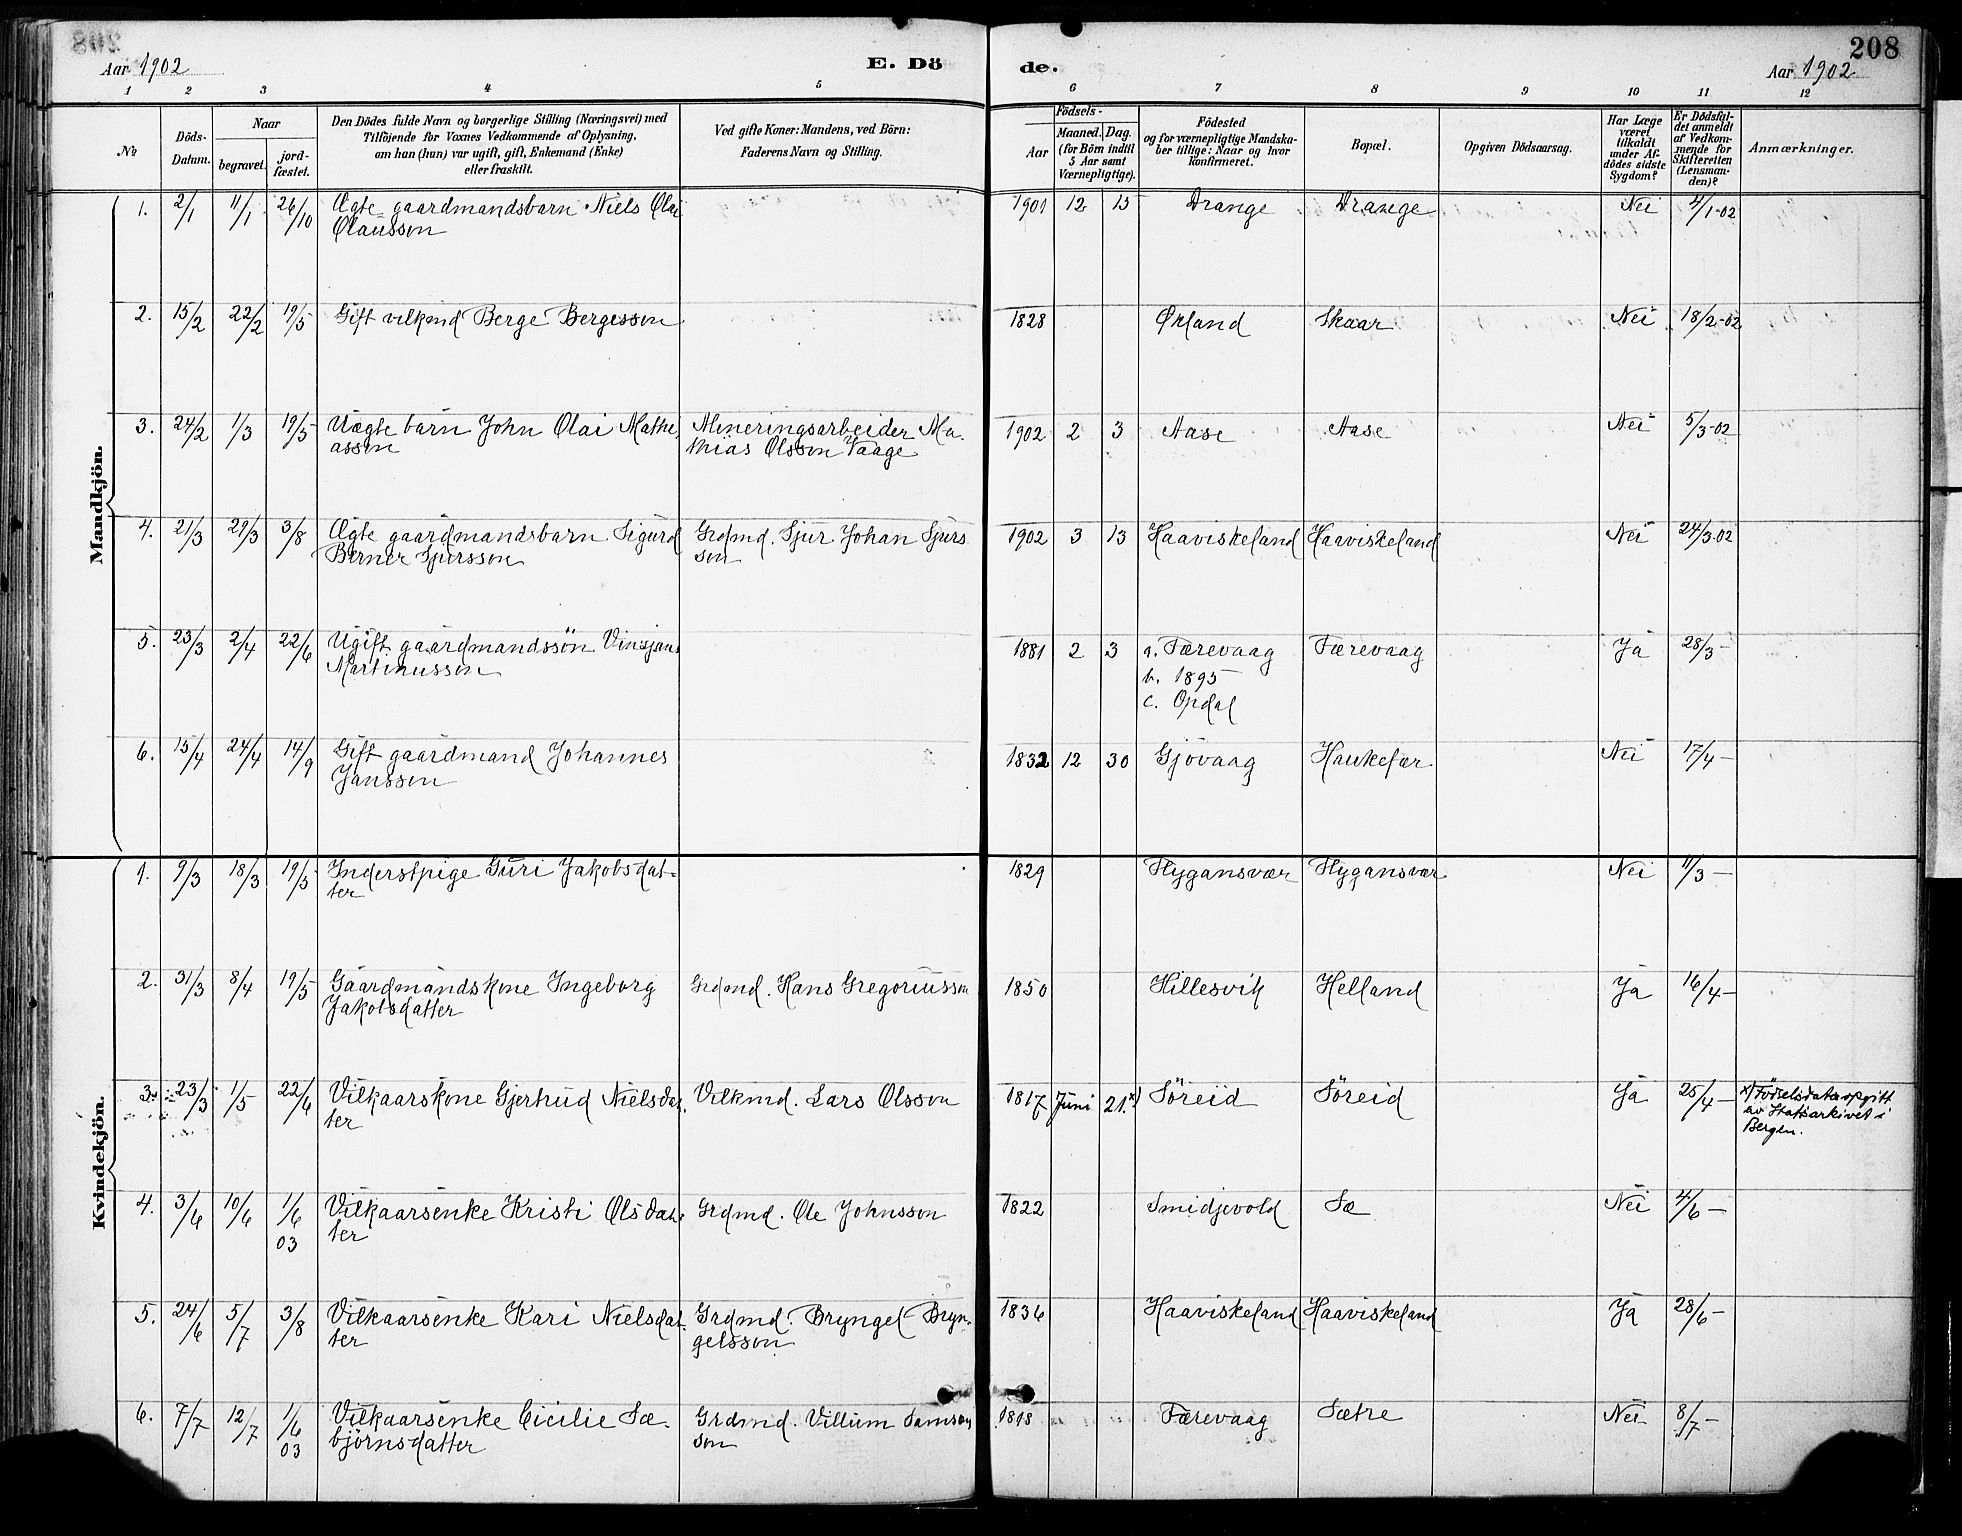 208
Aar 1902 E. Dö de. Aar 1902
1 2 3 4 5 6 7 8 9 10 11 12
No
Döds-Datum.
Naar
begravet.
jord-fæstet.
Den Dödes fulde Navn og borgerlige Stilling (Næringsvei) med
Tilföiende for Voxnes Vedkommende af Oplysning,
om han (hun) var ugift, gift, Enkemand (Enke)
eller fraskilt.
Ved gifte Koner: Mandens, ved Börn:
Faderens Navn og Stilling.
Födsels-
Aar
Maaned. Dag.
(for Börn indtil
5 Aar samt
Værnepligtige).
Födested
og for værnepligtige Mandska-
ber tillige: Naar og hvor
konfirmeret.
Bopæl.
Opgiven Dödsaarsag.
Har Læge
været
tilkaldt
under Af-
dödes sidste
Sygdom?
Er Dödsfal-
det anmeldt
af Vedkom-
mende for
Skifteretten
(Lensman-
den)?
Anmærkninger.
Mandkjön.
1. 2/1 11/1 26/10 Ægte gaardmandsbarn Niels Olai 1901 12 15 Drange Drange Nei 4/1-02
Olausson
2. 15/2 22/2 19/5 Gift vilkmd Berge Bergesson 1828 Ørland Skaar Nei 18/2-02
3. 24/2 1/3 19/5 Uægte barn John Olai Mathi- Mineringsarbeider Ma- 1902 2 3 Aase Aase Nei 5/3-02
asson thias Olsson Vaage
4. 21/3 29/3 3/8 Ægte gaardmandsbarn Sigurd Grdmd. Sjur Johan Sjurs 1902 3 13 Haaviskeland Haaviskeland Nei 24/3-02
Berner Sjursson son
5. 23/3 2/4 22/6 Ugift gaardmandssön Vinsjans 1881 2 3 a. Færevaag Færevaag Ja 28/3-
Martinusson b. 1895
c. Opdal
6. 15/4 24/4 14/9 Gift gaardmand Johannes 1832 12 30 Gjövaag Haukefær Nei 17/4-
Jansson
Kvindekjön.
1. 9/3 18/3 19/5 Inderstpige Guri Jakobsdat- 1829 Flygansvær Flygansvær Nei 11/3-
ter
2. 31/3 8/4 19/5 Gaardmandskone Ingeborg Grdmd. Hans Gregoriusson 1850 Hillesvik Helland Ja 16/4-
Jakobsdatter
3. 23/3 1/5 22/6 Vilkaarskone Gjertrud Nielsdat- Vilkmd. Lars Olsson 1817 Juni 21.x) Söreid Söreid Ja 25/4- x) Födselsdata opgitt
ter av Statsarkivet i
Bergen.
4. 3/6 10/6 1/6 Vilkaarsenke Kristi Olsdat- Grdmd. Ole Johnsson 1822 Smidjevold Sæ Nei 4/6-
03 ter
5. 24/6 5/7 3/8 Vilkaarsenke Kari Nielsdat- Grdmd. Bryngel Bryn- 1836 Haaviskeland Haaviskeland Ja 28/6-
ter gelsson
6. 7/7 12/7 1/6 Vilkaarsenke Cicilie Sæ- Grdmd. Villum Samson 1818 Færevaag Sætre Nei 8/7-
03 björnsdatter son